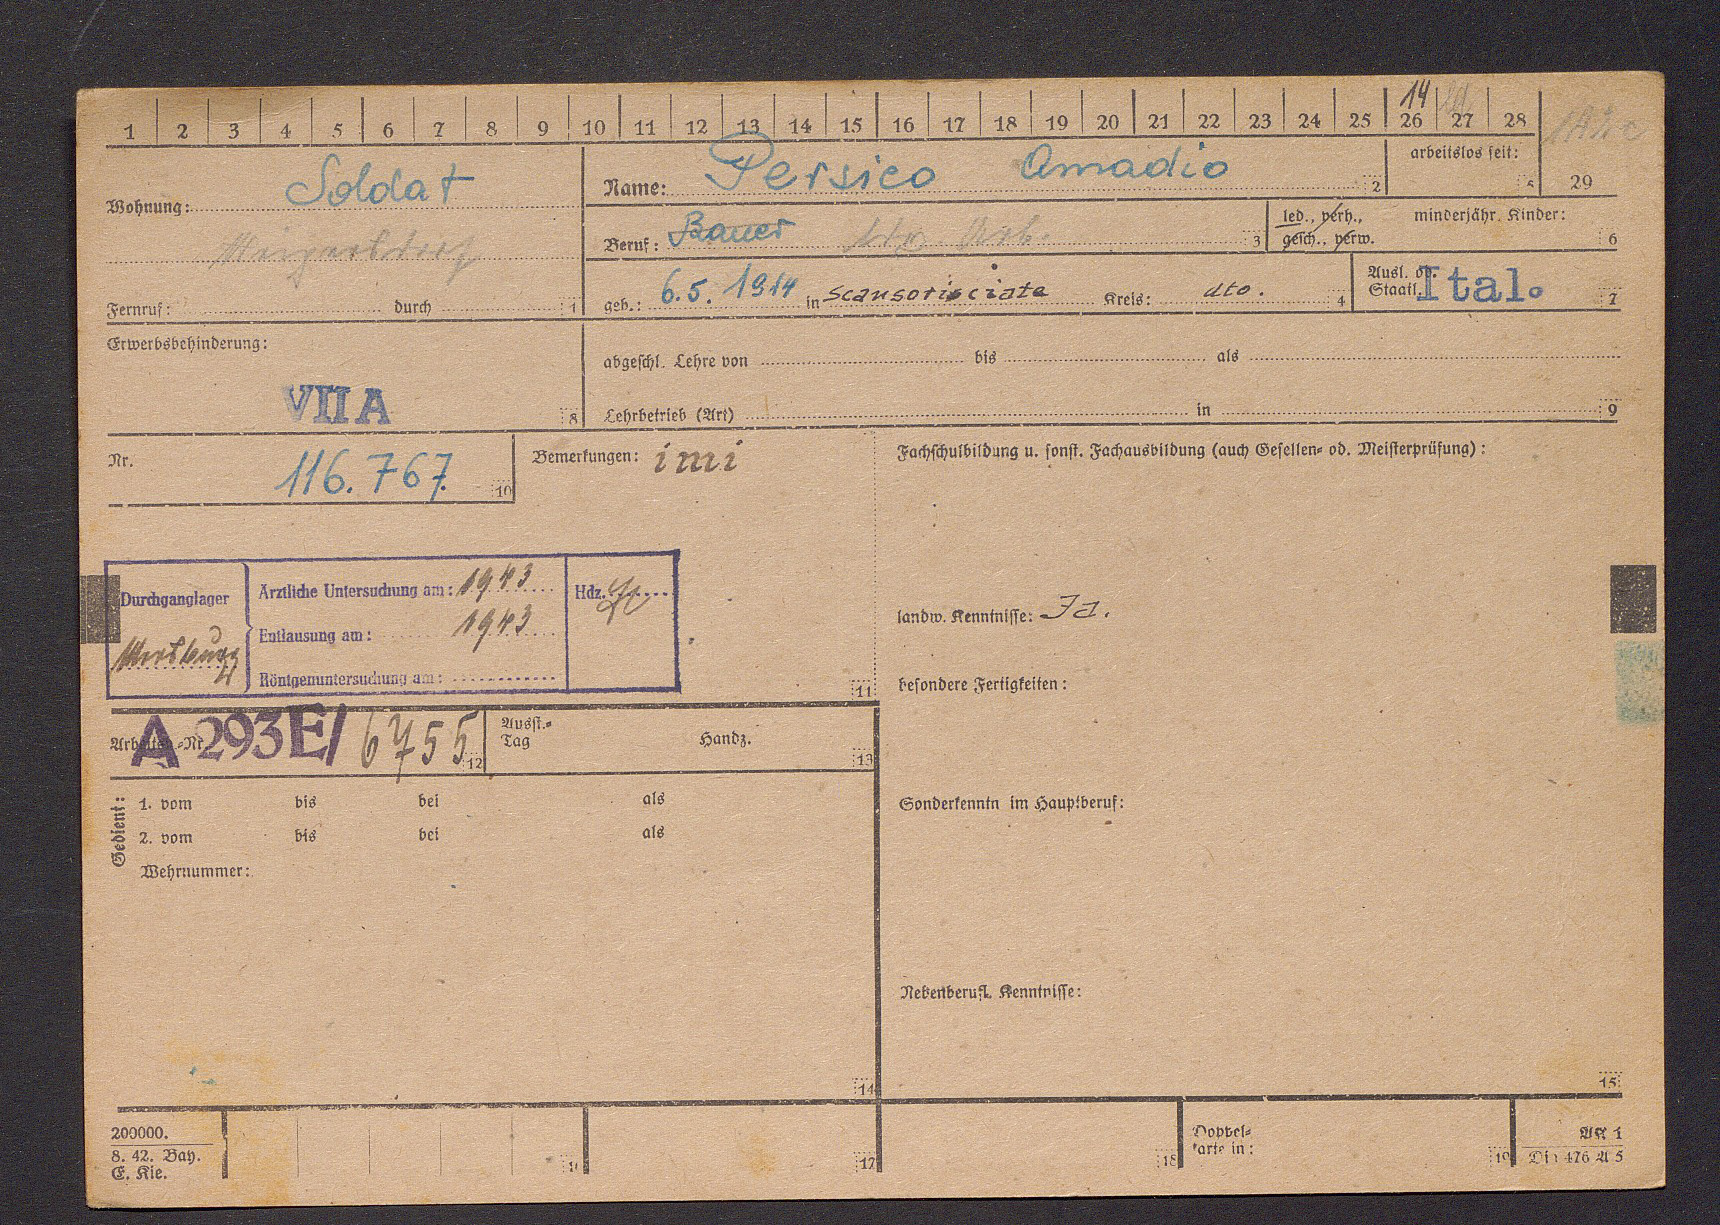 1 2 3 4 5 6 7 8 9 10 11 12 13 14 15 16 17 18 19 20 21 22 23 24 25 26 27 28 29
14
Wohnung: Soldat
Name: Persico Amadio 2
arbeitslos seit: 5
Beruf: Bauer 3
led., verh.,
gesch., verw.
minderjähr. Kinder: 6
Fernruf: durch 1
geb.: 6.5. 1914 in Scansorisciate Kreis: dto. 4
Ausl. od.
Staatl. Ital. 7
Erwerbsbehinderung:
VII A 8
abgeschl. Lehre von bis als
Lehrbetrieb (Art) in 9
Nr. 116.767. 10
Bemerkungen: imi
Fachschulbildung u. sonst. Fachausbildung (auch Gesellen- od. Meisterprüfung):
Durchganglager
Ärztliche Untersuchung am: 1943
Hdz.
Entlausung am: 1943
Röntgenuntersuchung am:
11
landw. Kenntnisse: Ja.
besondere Fertigkeiten:
Arbeitsb.-Nr. A 293E/ 6755 12
Ausst.-
Tag
Handz. 13
Gedient:
1. vom bis bei als
2. vom bis bei als
Wehrnummer:
14
Sonderkenntn im Hauptberuf:
Nebenberufl. Kenntnisse:
15
200000.
8. 42. Bay.
E. Kie.
17
18
Doppel-
karte in: 19
AK 1
Din 476 A 5